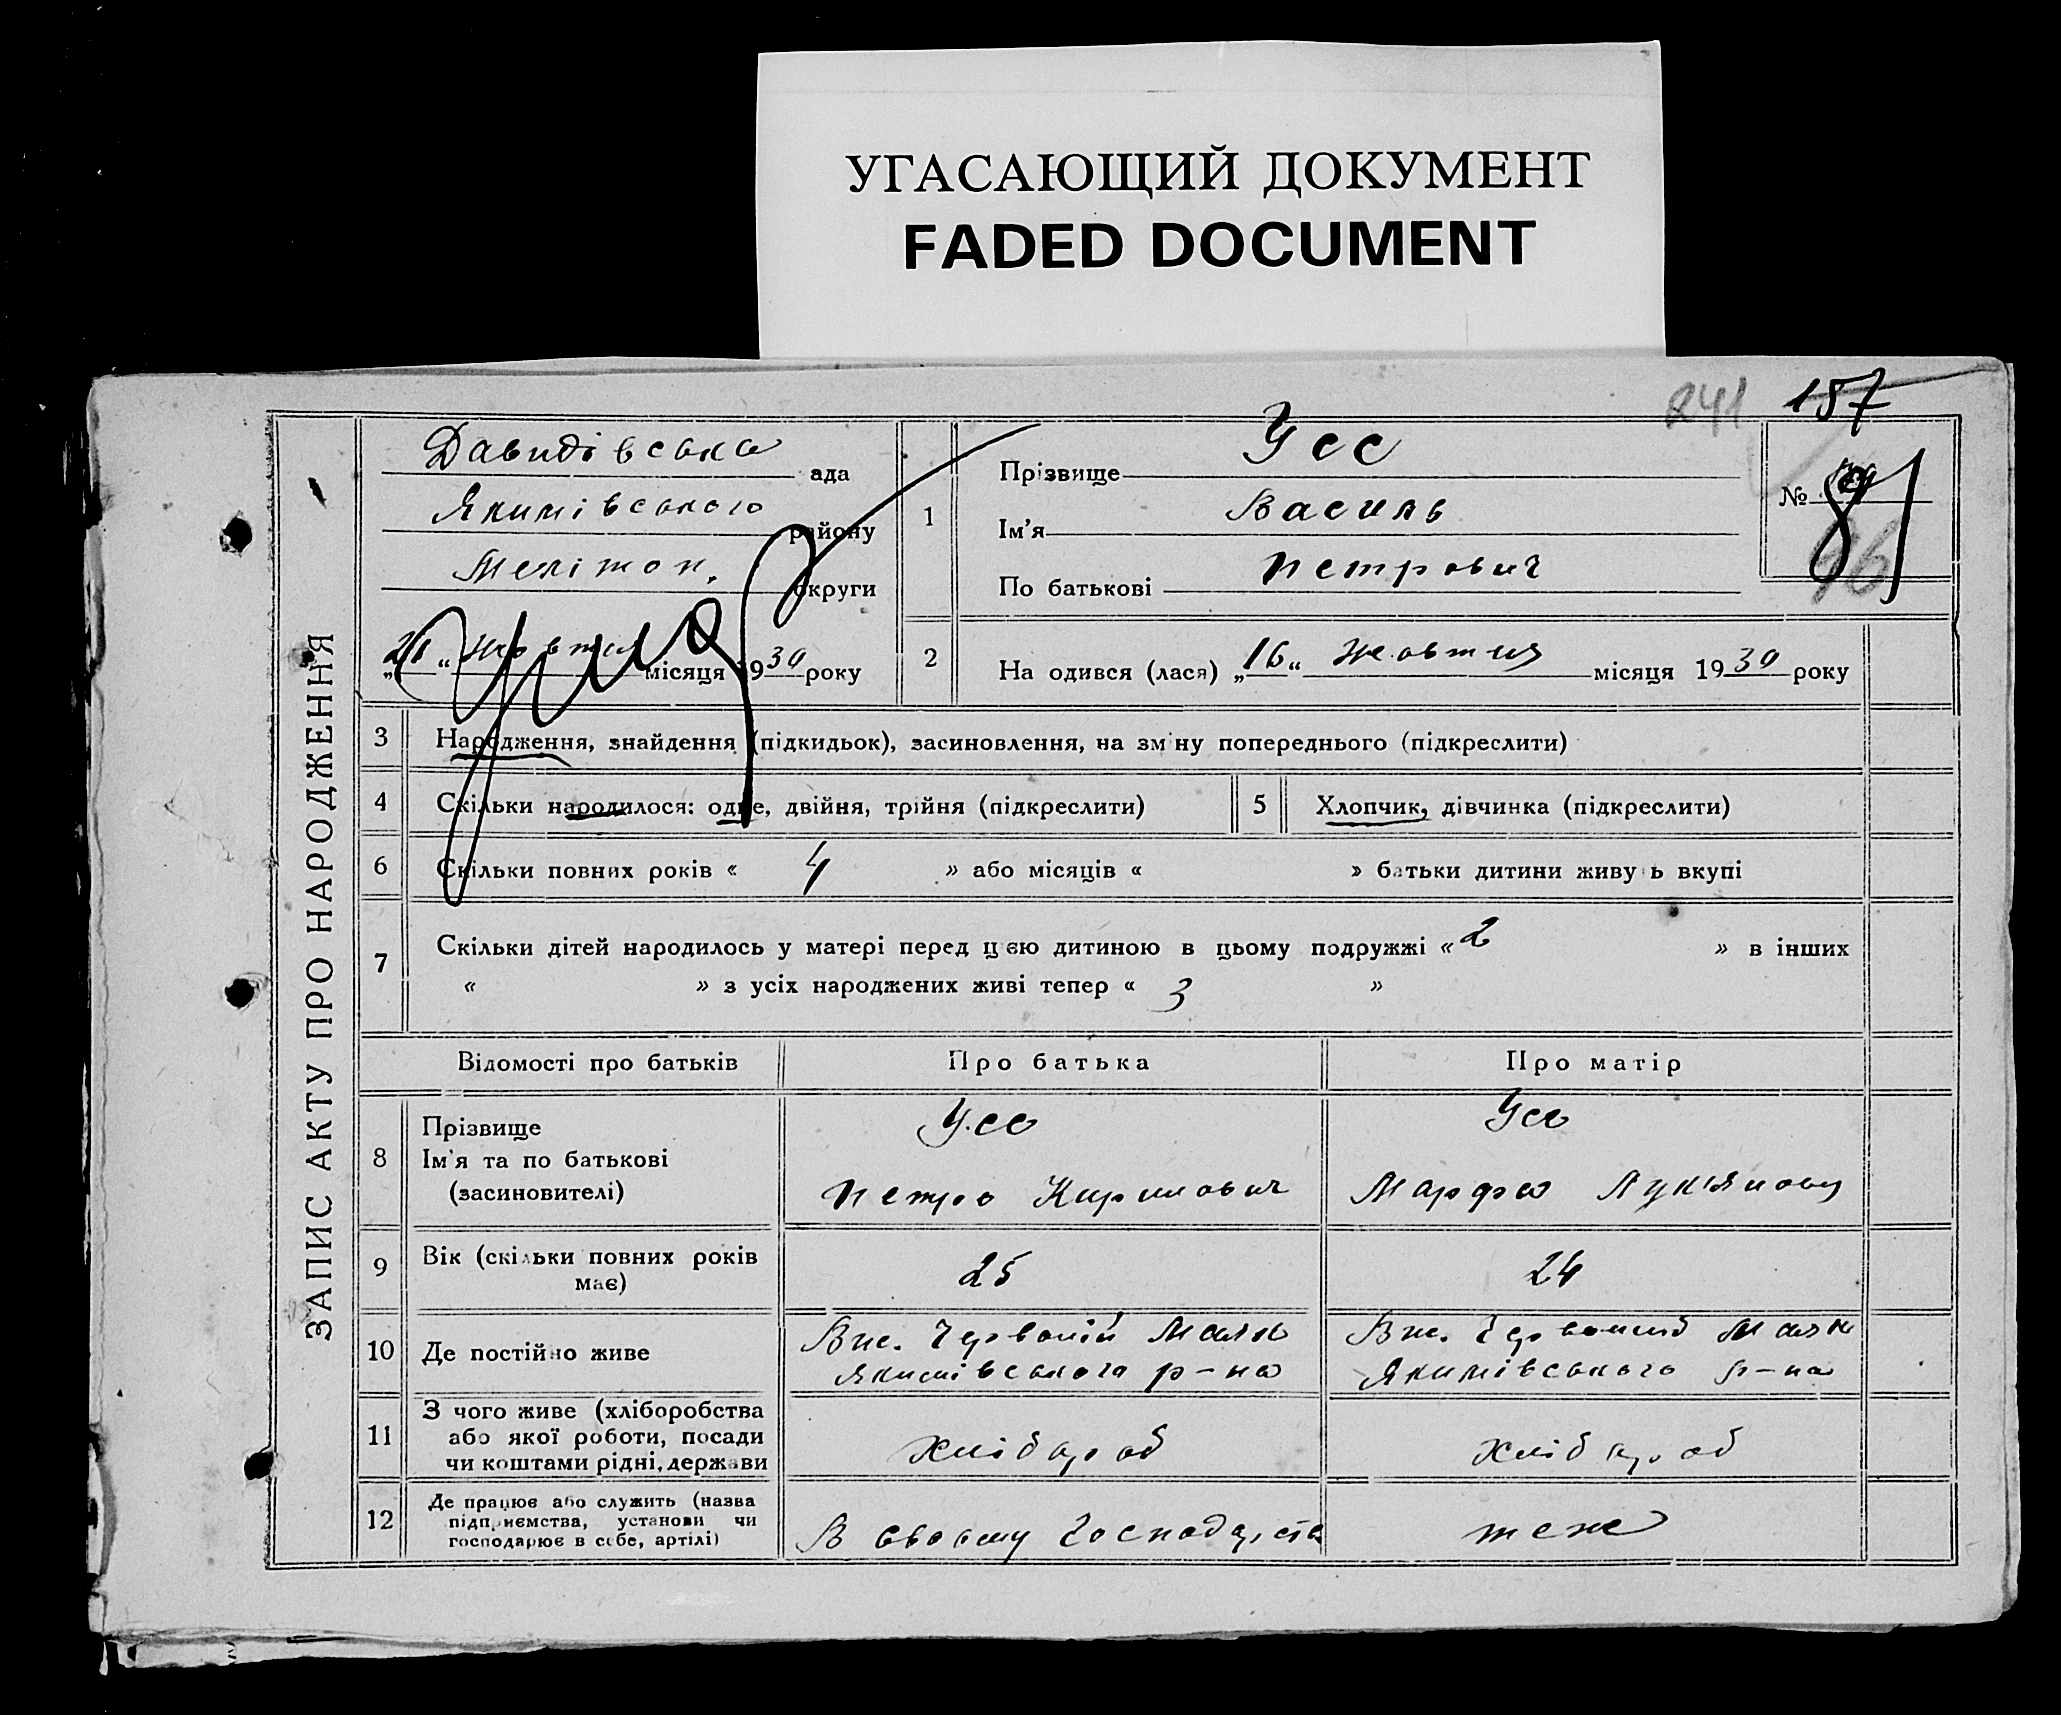 УГАСАЮЩИЙ ДОКУМЕНТ
FADED DOCUMENT
241 157
ЗАПИС АКТУ ПРО НАРОДЖЕННЯ
Давидівська ада
Якимівського району
Мелітоп. округи
„21“ жовтня місяця 1930 року
1
Прізвище Усс
Ім'я Василь
По батькові Петрович
№ 81
96
2 На одився (лася) „16“ жовтня місяця 1930 року
3 Народження, знайдення (підкидьок), засиновлення, на зм ну попереднього (підкреслити)
4 Скільки народилося: одне, двійня, трійня (підкреслити) 5 Хлопчик, дівчинка (підкреслити)
6 Скільки повних років « 4 » або місяців « » батьки дитини живу ь вкупі
7 Скільки дітей народилось у матері перед цією дитиною в цьому подружжі « 2 » в інших
« » з усіх народжених живі тепер « 3 »
Відомості про батьків Про батька Про матір
8 Прізвище Усс Усс
Ім'я та по батькові
(засиновителі) Петро Кирилович Марфа Лук'янова
9 Вік (скільки повних років
має) 25 24
10 Де постійно живе
Вис. Червоній Маяк
Якимівського р-на
Вис. Червоний Маяк
Якимівського р-на
11 З чого живе (хліборобства
або якої роботи, посади
чи коштами рідні, держави
хлібороб хлібороб
12 Де працює або служить (назва
підприємства, установи чи
господарює в себе, артілі)
В своєму господарстві теж